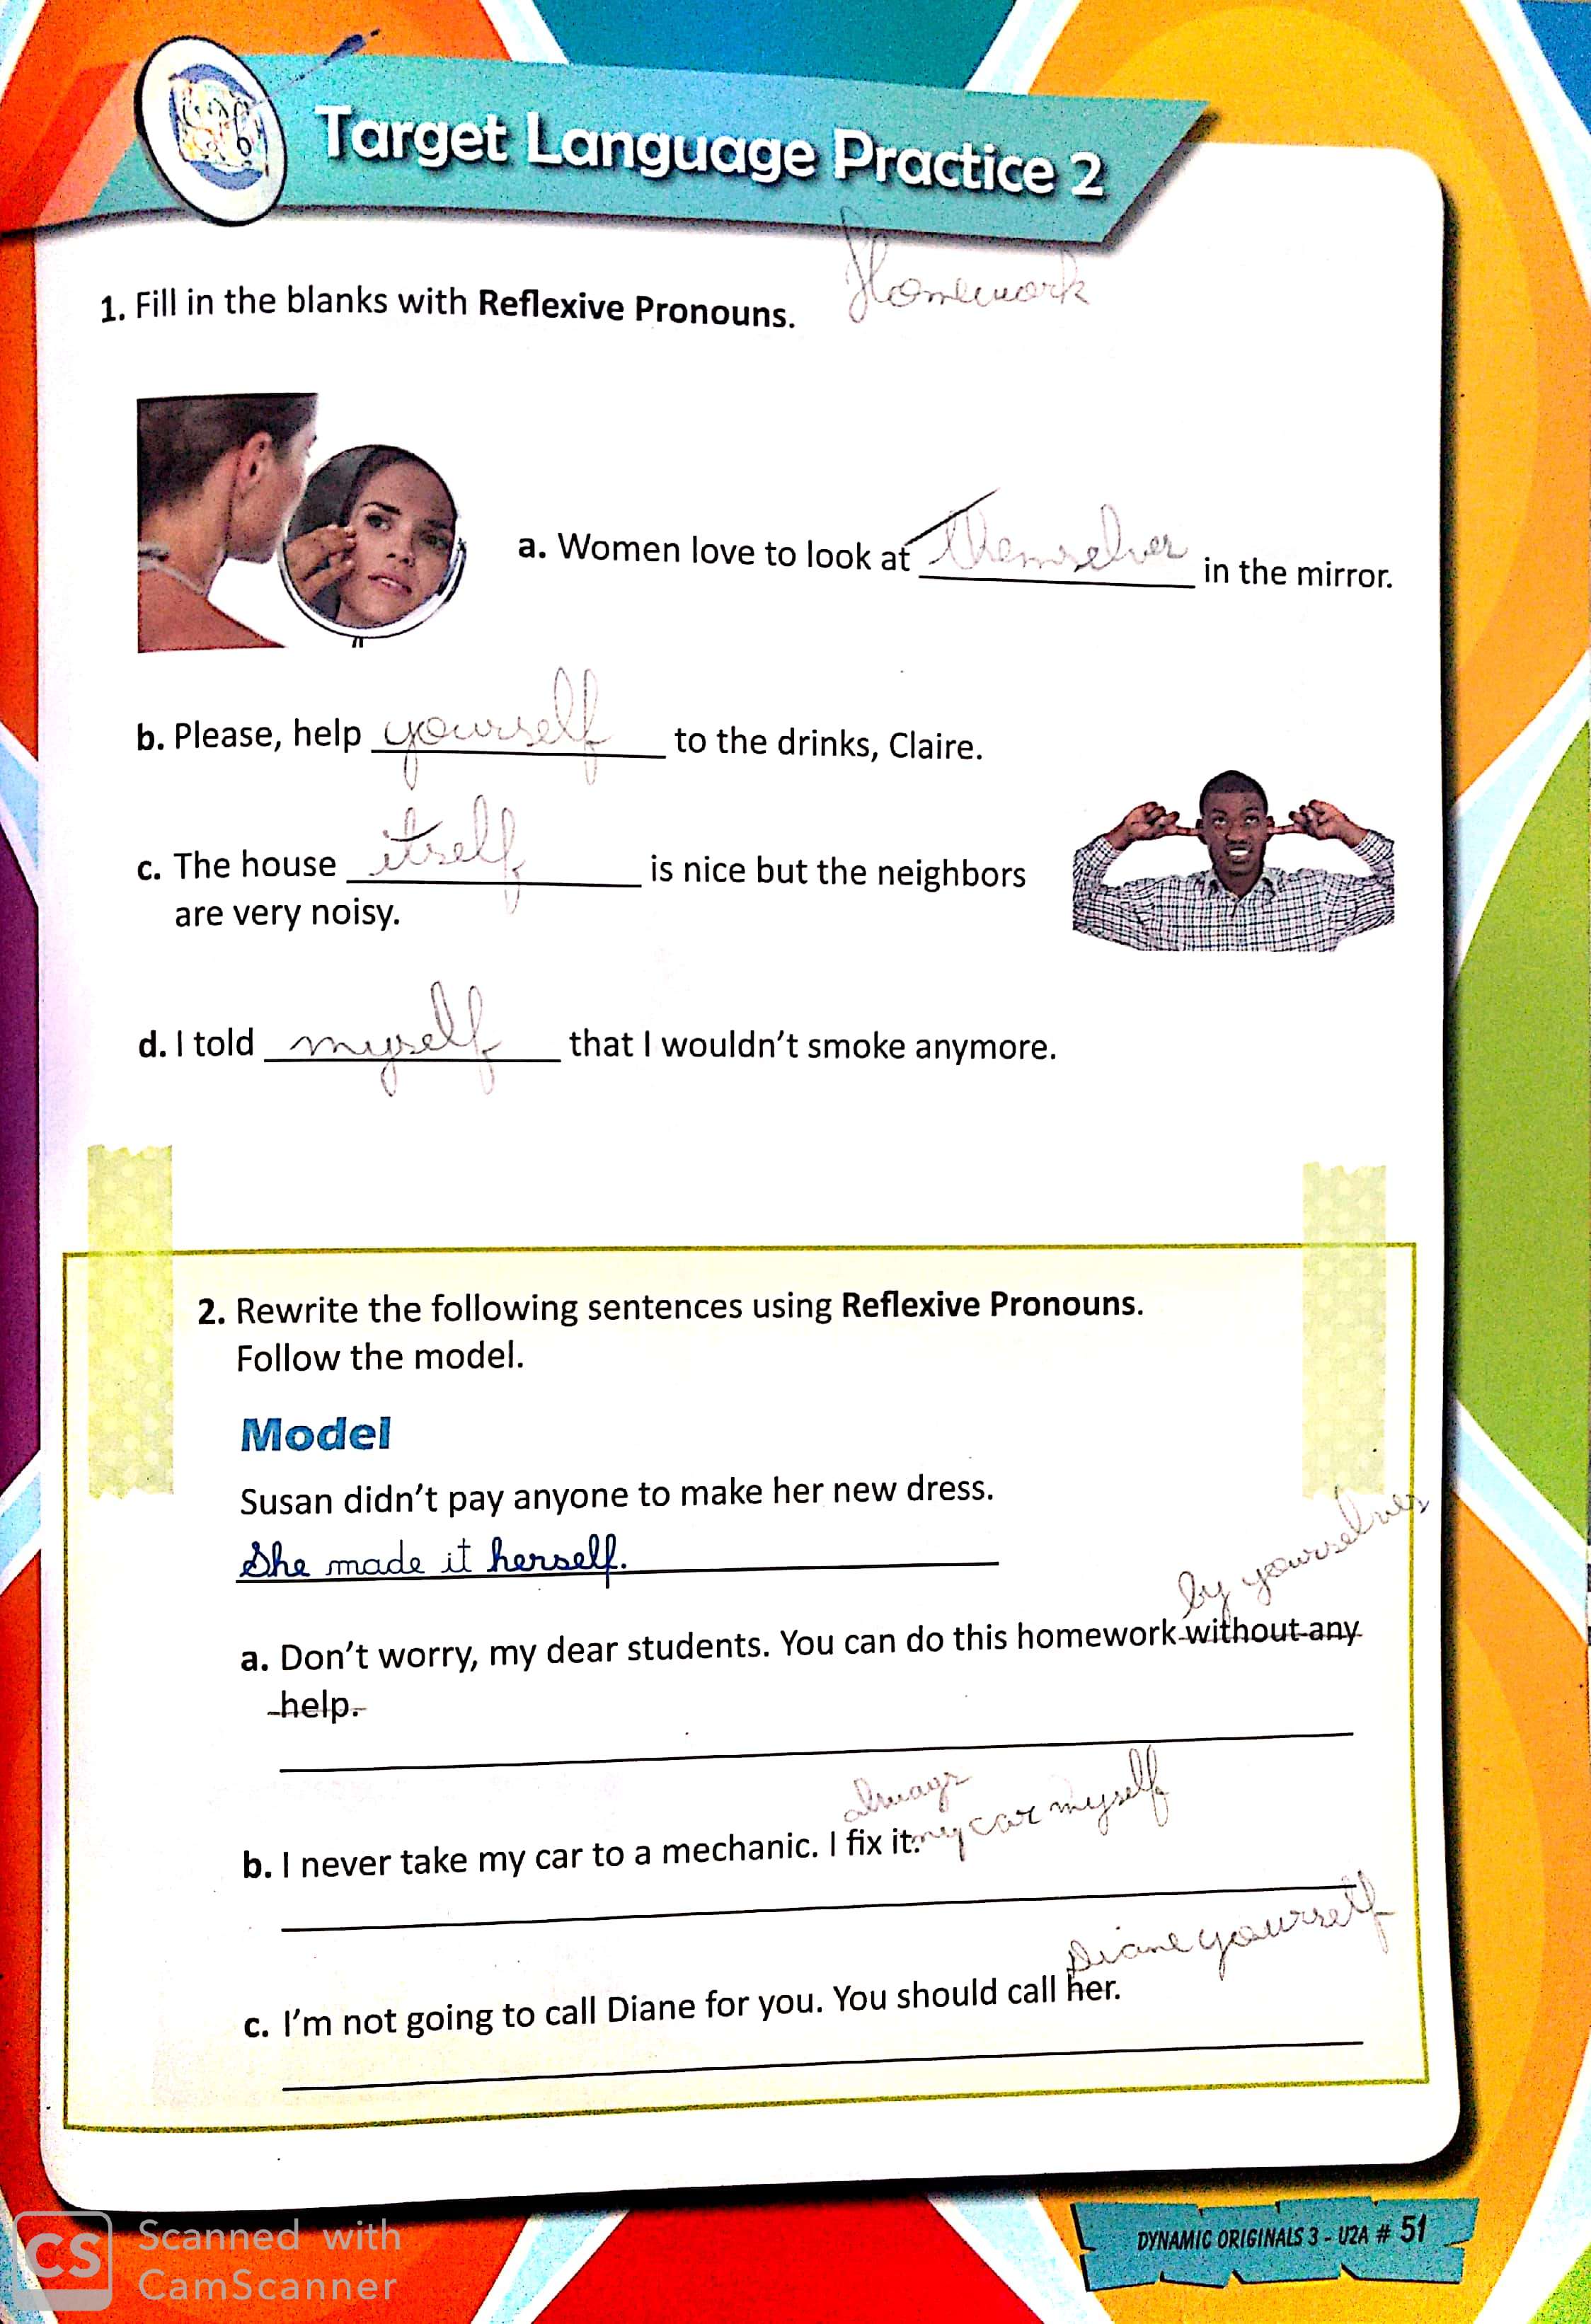 Target Language Practice 2
Homework
1. Fill in the blanks with Reflexive Pronouns.
a. Women love to look at themselves in the mirror.
b. Please, help yourself to the drinks, Claire.
c. The house itself is nice but the neighbors
are very noisy.
d. I told myself that I wouldn't smoke anymore.
2. Rewrite the following sentences using Reflexive Pronouns.
Follow the model.
Model
Susan didn't pay anyone to make her new dress.
She made it herself.
by yourselves
a. Don't worry, my dear students. You can do this homework without any
help.
always
b. I never take my car to a mechanic. I fix it. my car myself
Diane yourself
c. I'm not going to call Diane for you. You should call her.
DYNAMIC ORIGINALS 3 - U2A # 51
CS Scanned with
CamScanner